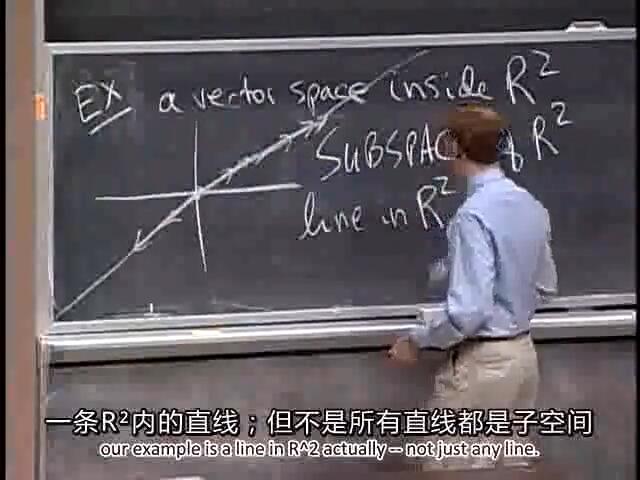 EX a vector space inside R²
SUBSPAC of R²
line in R²
一条R²内的直线；但不是所有直线都是子空间
our example is a line in R^2 actually -- not just any line.